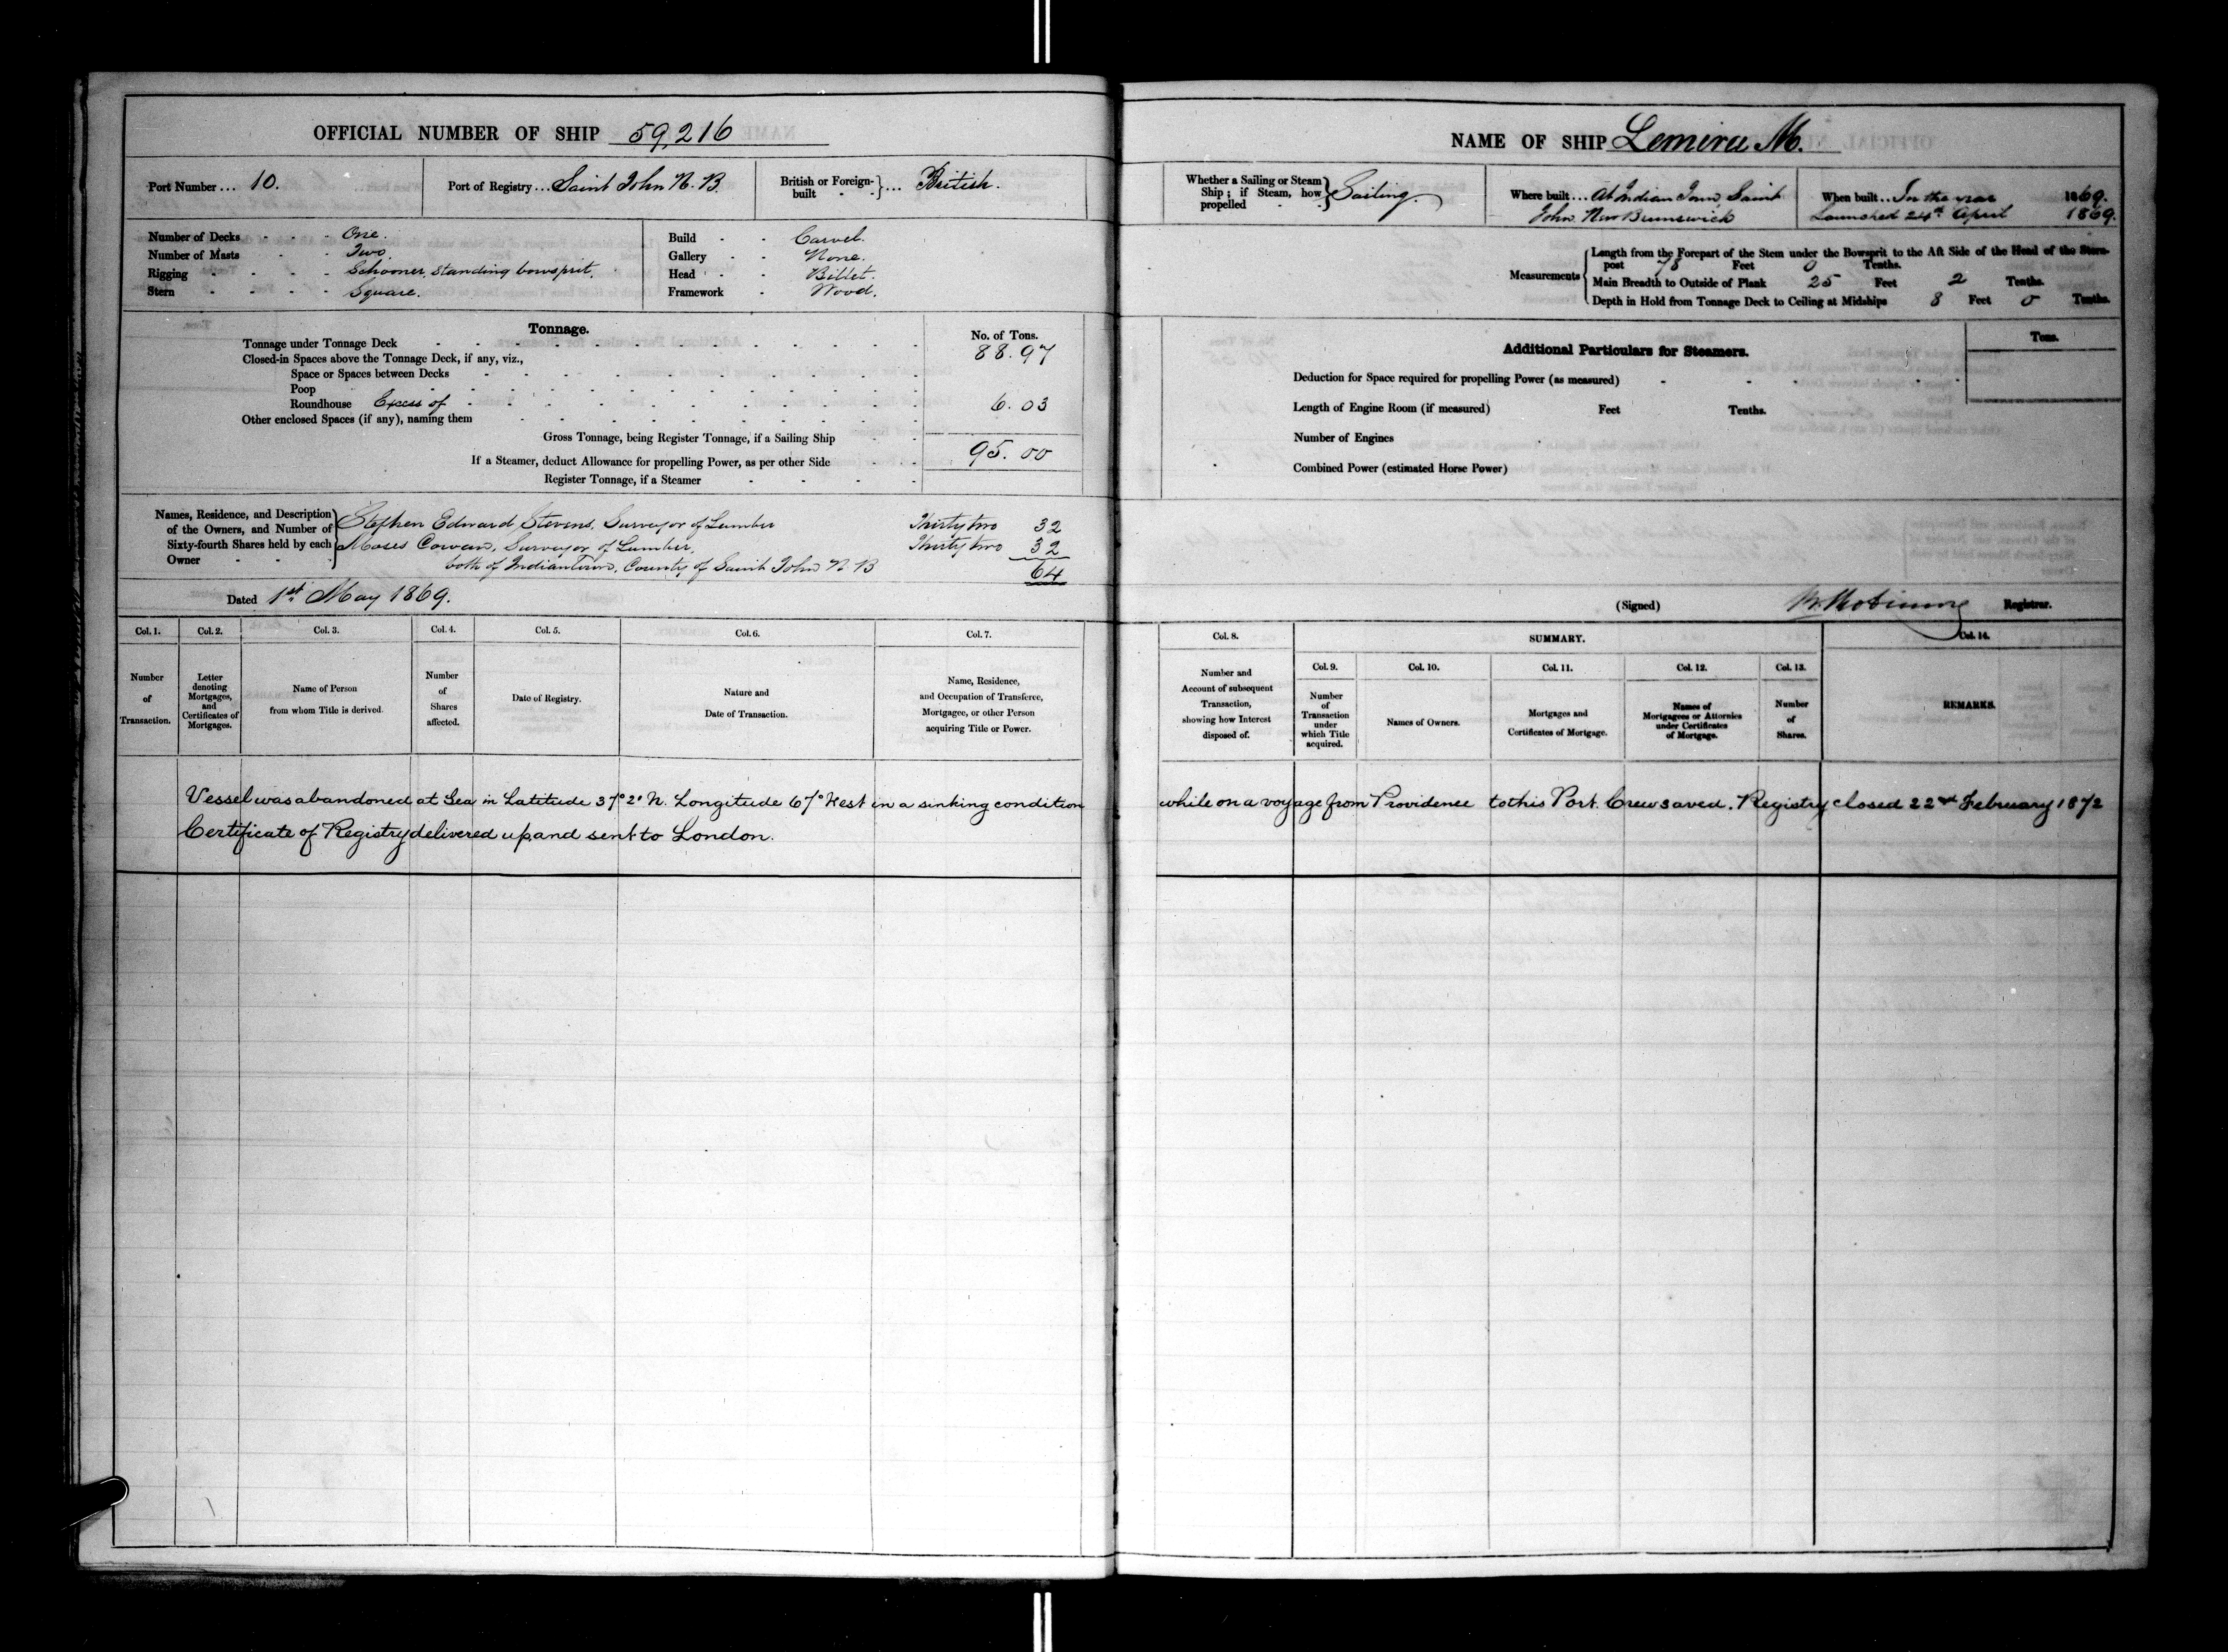 OFFICIAL NUMBER OF SHIP 59,216
Port Number... 10.
Port of Registry... Saint John N. B.
British or Foreign-built } ... British.
Number of Decks - - - One.
Number of Masts - - Two.
Rigging - - - - Schooner, standing bowsprit.
Stern - - - - Square.
Build - - Carvel.
Gallery - - None.
Head - - Billet.
Framework - Wood.
Tonnage.
No. of Tons.
Tonnage under Tonnage Deck 88.97
Closed-in Spaces above the Tonnage Deck, if any, viz.,
Space or Spaces between Decks
Poop
Roundhouse Excess of 6.03
Other enclosed Spaces (if any), naming them
Gross Tonnage, being Register Tonnage, if a Sailing Ship 95.00
If a Steamer, deduct Allowance for propelling Power, as per other Side
Register Tonnage, if a Steamer
Names, Residence, and Description
of the Owners, and Number of
Sixty-fourth Shares held by each
Owner
Stephen Edward Stevens, Surveyor of Lumber Thirty two 32
Moses Cowan, Surveyor of Lumber, Thirty two 32
both of Indiantown, County of Saint John N B 64
Dated 1st May 1869.
Col. 1. Col. 2. Col. 3. Col. 4. Col. 5. Col. 6. Col. 7.
Number of Transaction.
Letter denoting Mortgages, and Certificates of Mortgages.
Name of Person from whom Title is derived.
Number of Shares affected.
Date of Registry.
Nature and Date of Transaction.
Name, Residence, and Occupation of Transferee, Mortgagee, or other Person acquiring Title or Power.
Vessel was abandoned at Sea in Latitude 37° 2° N. Longitude 67° West in a sinking condition
Certificate of Registry delivered up and sent to London.
NAME OF SHIP Lemira M.
Whether a Sailing or Steam Ship; if Steam, how propelled } Sailing.
Where built... At Indian Town, Saint
John New Brunswick
When built... In the year 1869.
Launched 24th April 1869.
Measurements
Length from the Forepart of the Stem under the Bowsprit to the Aft Side of the Head of the Stern-
post 78 Feet 0 Tenths.
Main Breadth to Outside of Plank 25 Feet 2 Tenths.
Depth in Hold from Tonnage Deck to Ceiling at Midships 8 Feet 0 Tenths.
Additional Particulars for Steamers.
Tons.
Deduction for Space required for propelling Power (as measured)
Length of Engine Room (if measured) Feet Tenths.
Number of Engines
Combined Power (estimated Horse Power)
(Signed) Registrar.
Col. 8. SUMMARY. Col. 14.
Col. 9. Col. 10. Col. 11. Col. 12. Col. 13.
Number and Account of subsequent Transaction, showing how Interest disposed of.
Number of Transaction under which Title acquired.
Names of Owners.
Mortgages and Certificates of Mortgage.
Names of Mortgagees or Attornies under Certificates of Mortgage.
Number of Shares.
REMARKS.
while on a voyage from Providence to this Port. Crew saved. Registry closed 22nd February 1872